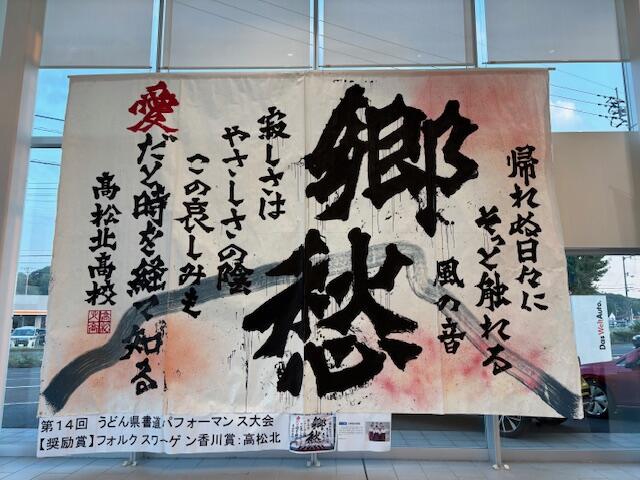 帰れぬ日々に
そっと触れる
風の音
郷愁
寂しさは
やさしさの陰
この哀しみも
愛だと時を経て知る
高松北高校
第14回 うどん県書道パフォーマンス大会
【奨励賞】フォルクスワーゲン香川賞:高松北
郷愁
Das WeltAuto.